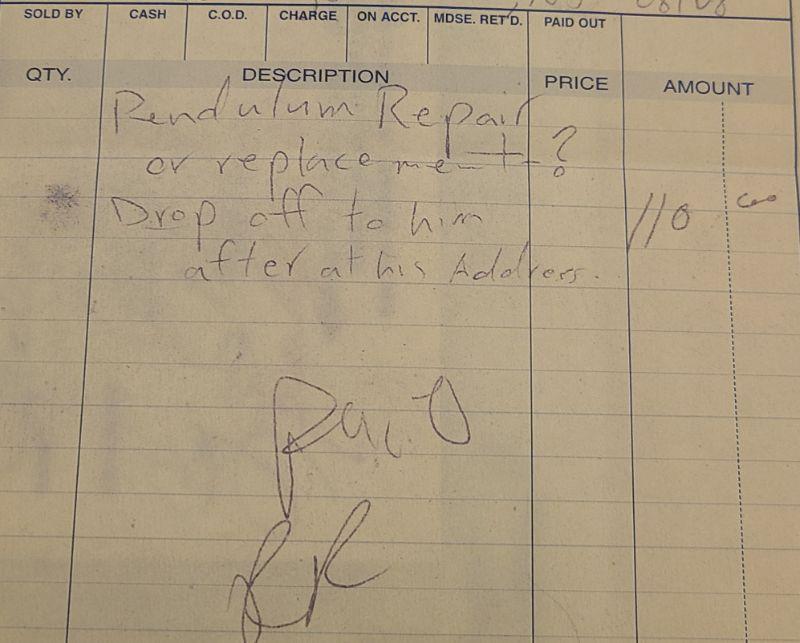 SOLD BY CASH C.O.D. CHARGE ON ACCT. MDSE. RET'D. PAID OUT
QTY. DESCRIPTION PRICE AMOUNT
Pendulum Repair
or replacement?
Drop off to him 110 00
after at his Address.
Paid
RR